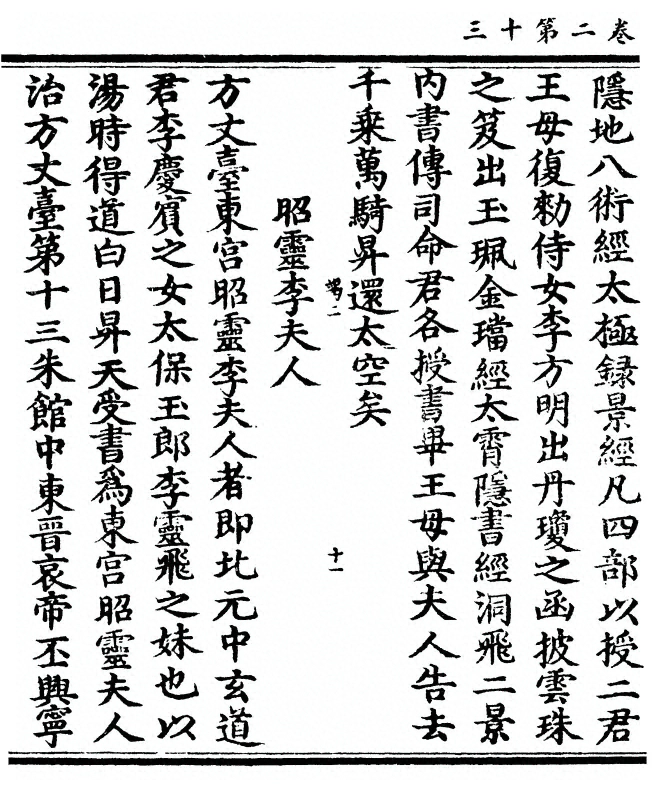 三十第二卷
隱地八術經太極錄景經凡四部以授二君
王母復勑侍女李方明出丹瓊之函披雲珠
之笈出玉珮金璫經太霄隱書經洞飛二景
內書傳司命君各授書畢王母與夫人告去
千乘萬騎昇還太空矣
十一
昭靈李夫人
方丈臺東宮昭靈李夫人者即北元中玄道
君李慶賓之女太保玉郎李靈飛之妹也以
湯時得道白日昇天受書為東宮昭靈夫人
治方丈臺第十三朱館中東晉哀帝丕興寧